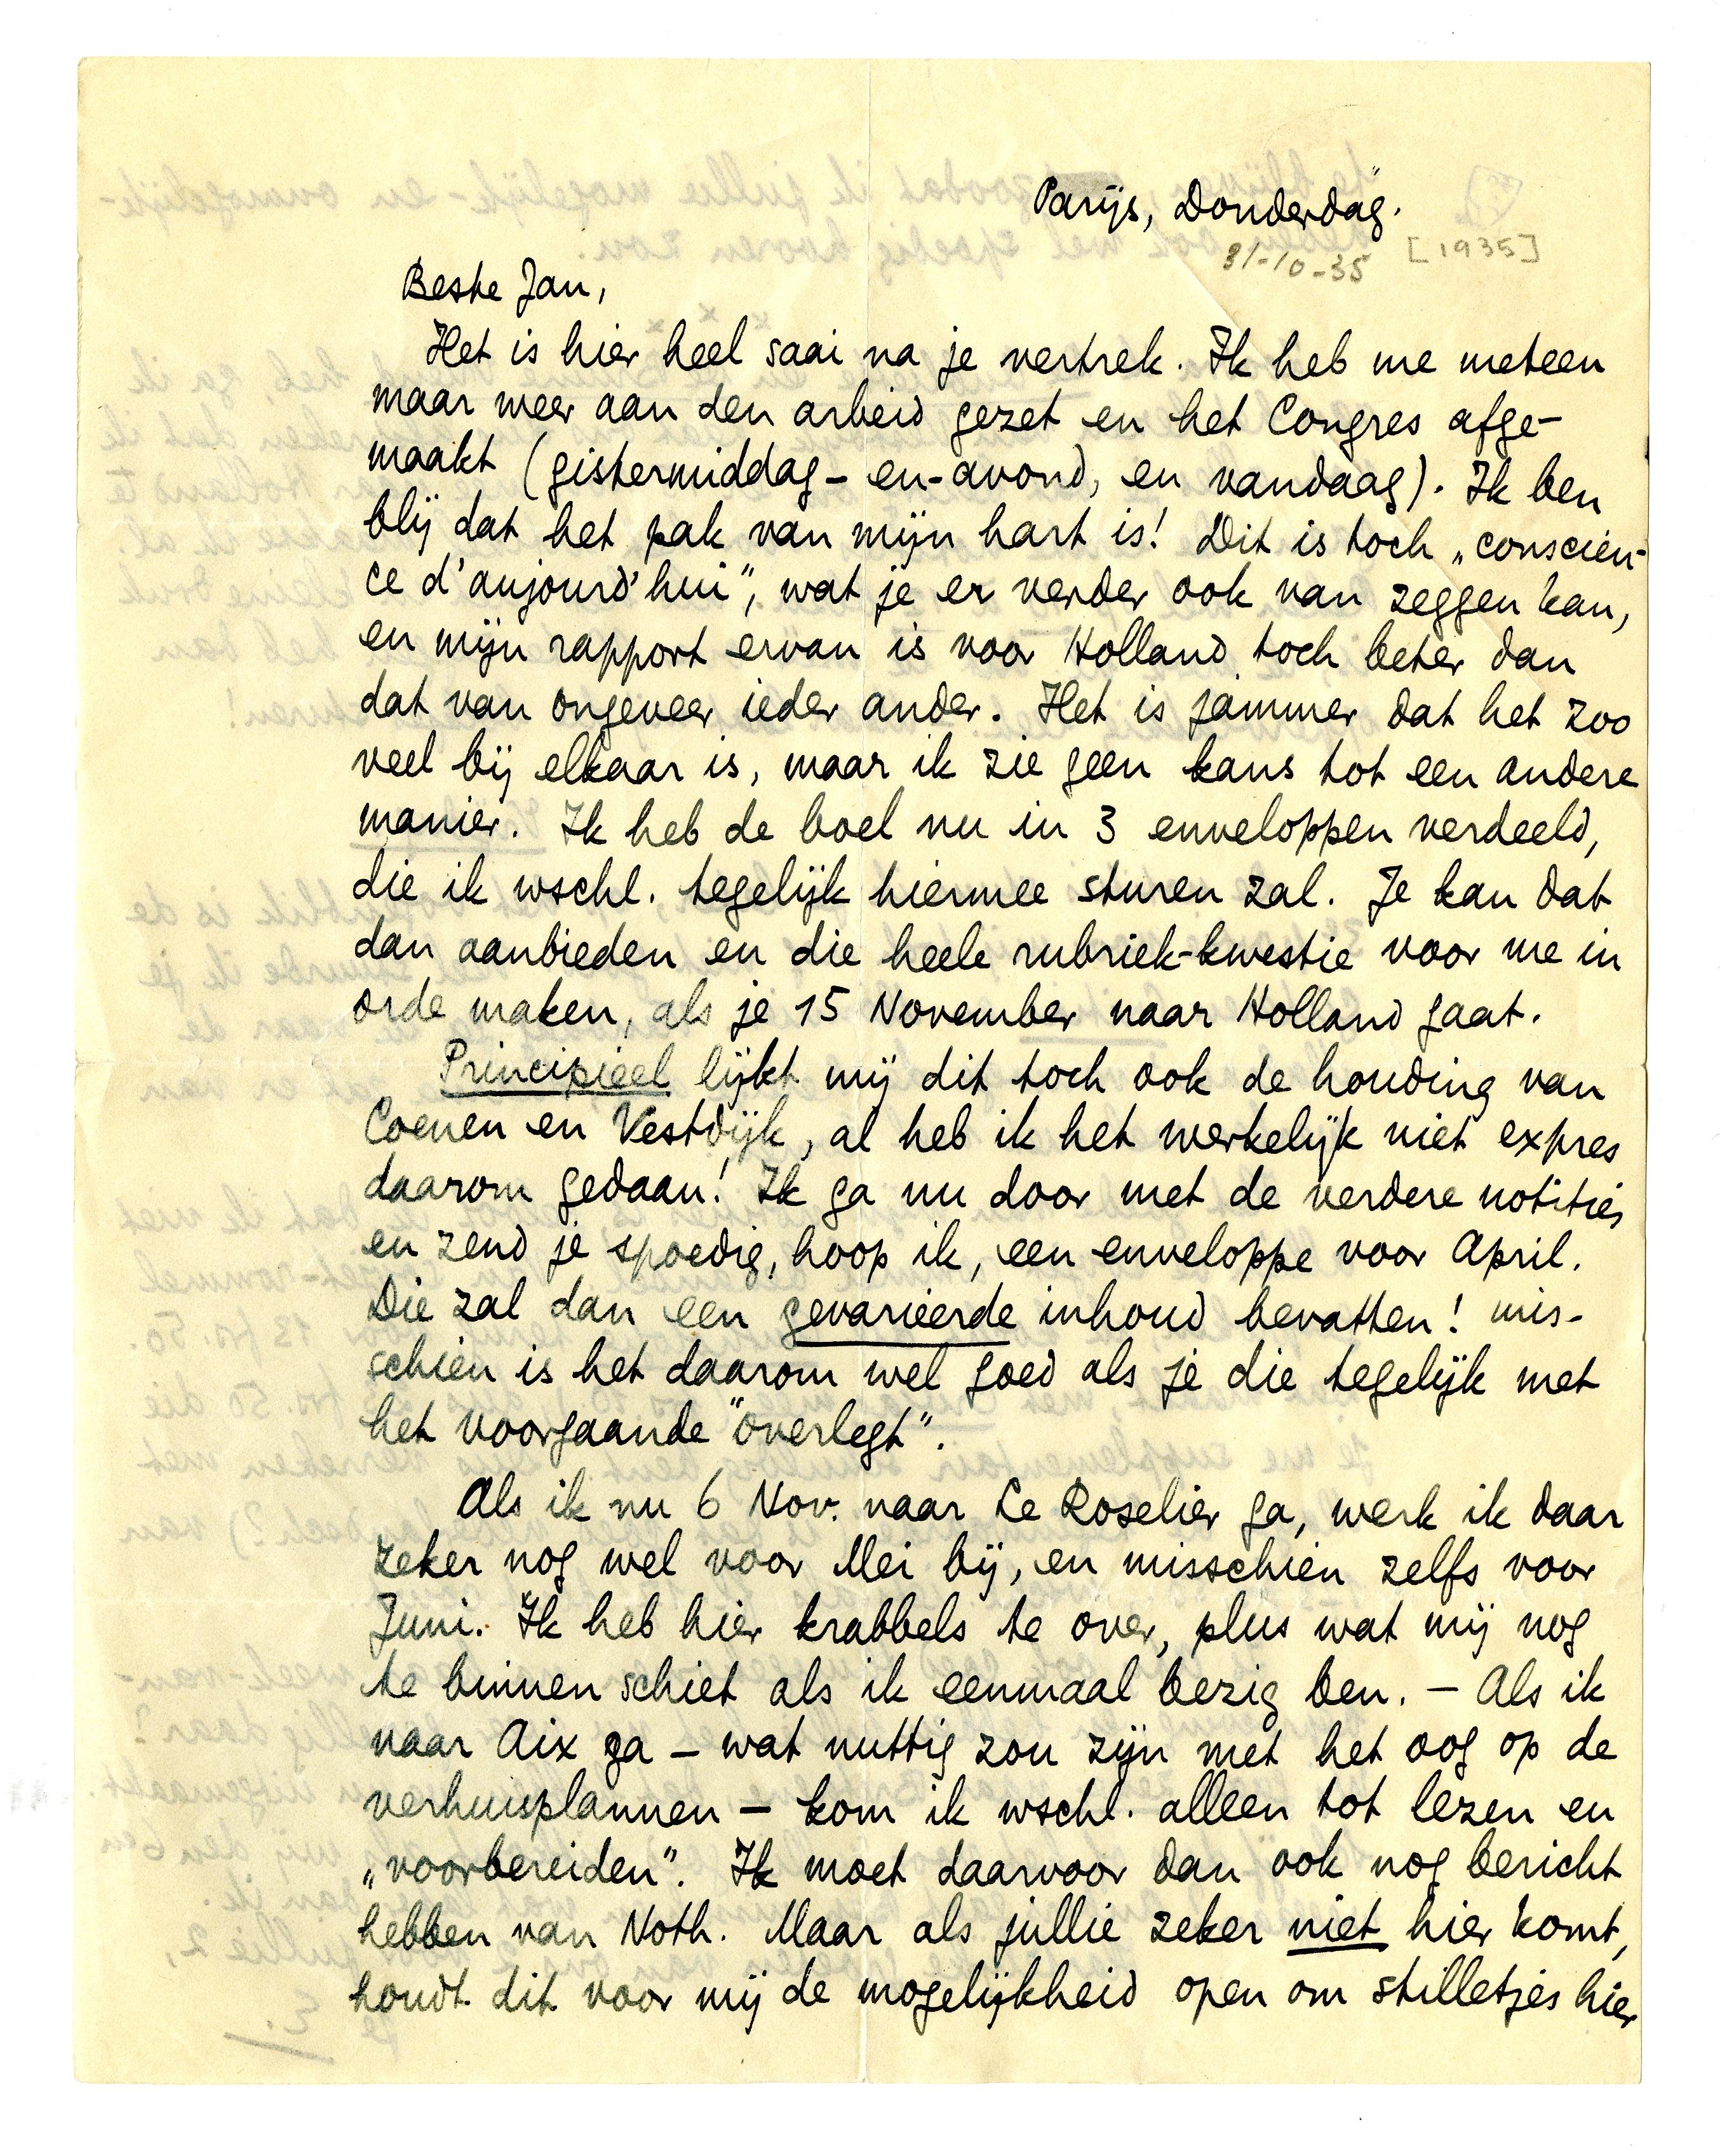 Parijs, Donderdag.
31-10-35 [1935]
Beste Jan,
Het is hier heel saai na je vertrek. Ik heb me meteen
maar weer aan den arbeid gezet en het Congres afge-
maakt (gistermiddag- en-avond, en vandaag). Ik ben
blij dat het pak van mijn hart is! Dit is toch „conscien-
ce d'aujourd'hui”, wat je er verder ook van zeggen kan,
en mijn rapport ervan is voor Holland toch beter dan
dat van ongeveer ieder ander. Het is jammer dat het zoo
veel bij elkaar is, maar ik zie geen kans tot een andere
manier. Ik heb de boel nu in 3 enveloppen verdeeld,
die ik wschl. tegelijk hiermee sturen zal. Je kan dat
dan aanbieden en die heele rubriek-kwestie voor me in
orde maken, als je 15 November naar Holland gaat.
Principieel lijkt mij dit toch ook de houding van
Coenen en Vestdijk, al heb ik het werkelijk niet expres
daarom gedaan! Ik ga nu door met de verdere notities
en zend je spoedig, hoop ik, een enveloppe voor April.
Die zal dan een gevarieerde inhoud bevatten! Mis-
schien is het daarom wel goed als je die tegelijk met
het voorgaande “overlegt”.
Als ik nu 6 Nov. naar Le Roselier ga, werk ik daar
zeker nog wel voor Mei bij, en misschien zelfs voor
Juni. Ik heb hier krabbels te over, plus wat mij nog
te binnen schiet als ik eenmaal bezig ben. — Als ik
naar Aix ga — wat nuttig zou zijn met het oog op de
verhuisplannen — kom ik wschl. alleen tot lezen en
„voorbereiden”. Ik moet daarvoor dan ook nog bericht
hebben van Noth. Maar als jullie zeker niet hier komt,
houdt dit voor mij de mogelijkheid open om stilletjes hier